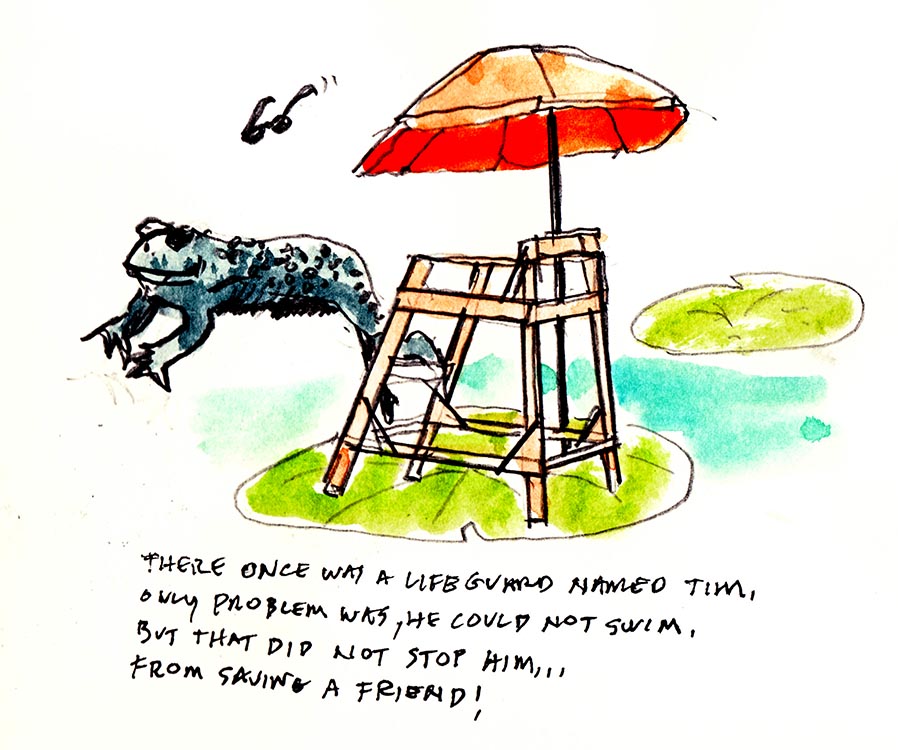 THERE ONCE WAS A LIFEGUARD NAMED TIM,
ONLY PROBLEM WAS, HE COULD NOT SWIM.
BUT THAT DID NOT STOP HIM...
FROM SAVING A FRIEND!